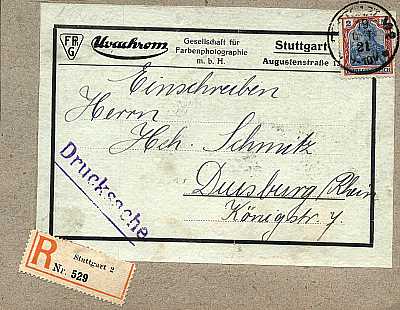 FRG
Uvachrom
Gesellschaft für
Farbenphotographie
m. b. H.
Stuttgart
Augustenstraße 13
Einschreiben
Herrn
Hch. Schmitz
Duisburg/Rhein
Königstr. 7
Drucksache
R
Stuttgart 2
Nr. 529
21